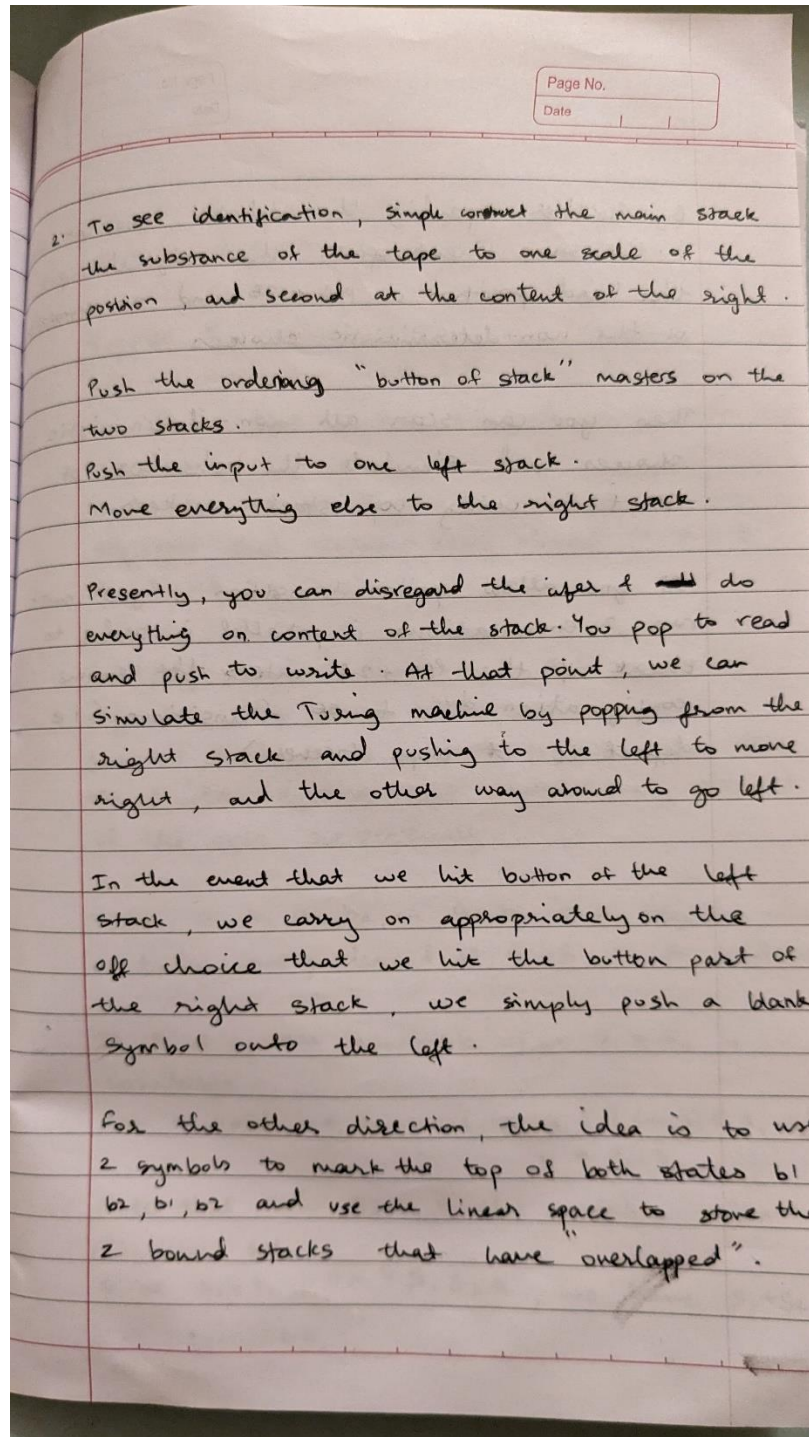 Page No.
Date
2. To see identification, simple construct the main stack
the substance of the tape to one scale of the
position, and second at the content of the right.
Push the ordering "button of stack" masters on the
two stacks.
Push the input to one left stack.
Move everything else to the right stack.
Presently, you can disregard the & do
everything on content of the stack. You pop to read
and push to write. At that point, we can
simulate the Turing machine by popping from the
right stack and pushing to the left to move
right, and the other way around to go left.
In the event that we hit button of the left
stack, we carry on appropriately on the
off choice that we hit the button part of
the right stack, we simply push a blank
symbol onto the left.
For the other direction, the idea is to us
2 symbols to mark the top of both states b1
b2, b1, b2 and use the linear space to store th
2 bound stacks that have "overlapped".